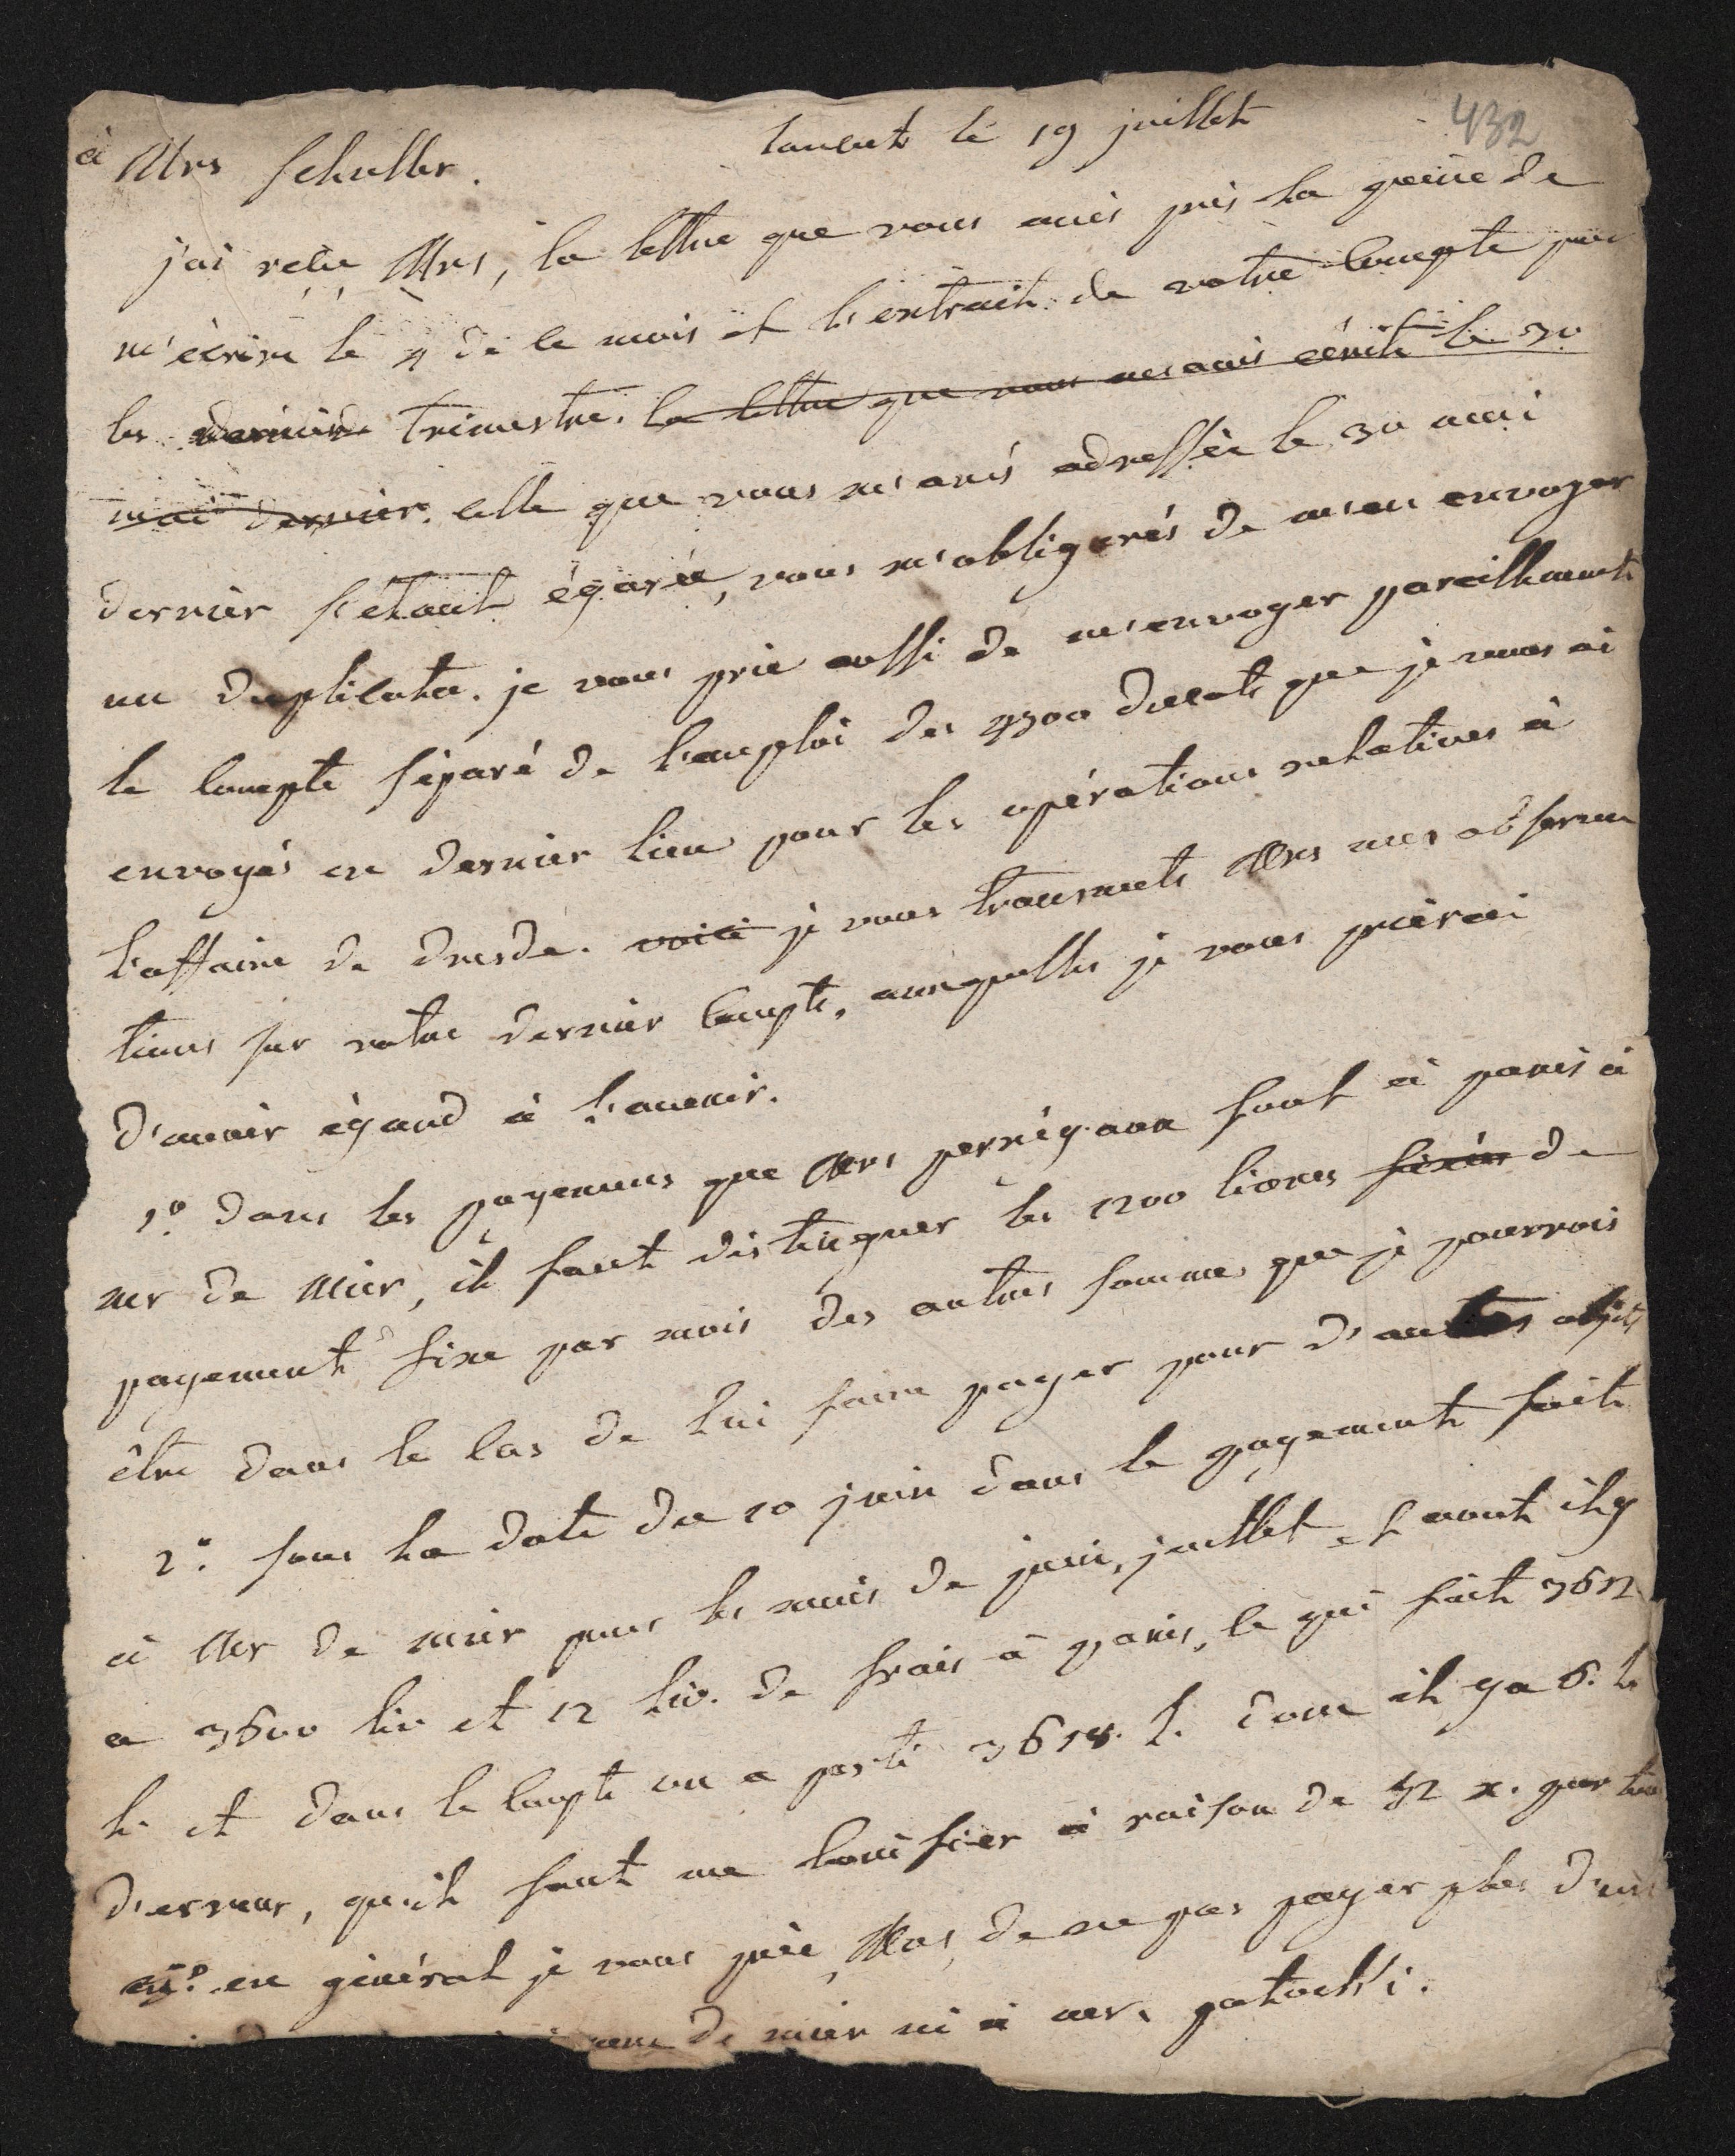 432
Lancut le 19 juillet
à Mrs Schuller.
j'ai reçu Mrs, la lettre que vous avès pris la peine de
m'écrire le 4 de ce mois et l'extrait de votre Compte pour
les dernier trimestre. la lettre que vous m'avès écrite le 30
mai dernier. celle que vous m'avès adressée le 30 mai
dernier s'étant égarée, vous m'obligerés de m'en envoyer
un duplicata. je vous prie aussi de m'envoyer pareillement
le Compte séparé de l'emploi des 4500 ducats que je vous ai
envoyés en dernier lieu pour les opérations relatives à
l'affaire de dresde. voici je vous transmets Mrs mes observa
tions sur votre dernier Compte, auxquelles je vous prierai
d'avoir égard à l'avenir.
1º. dans les payemens que Mrs perrégaux font à paris à
mr de Mier, il faut distinguer les 1200 livres fixés de
payement fixe par mois des autres sommes que je pourrois
être dans le cas de lui faire payer pour d'autres objets
2º. sous la date du 10 juin dans le payement fait
à Mr de mier pour les mois de juin, juillet et aout il y
a 3600 liv et 12 liv. de frais à paris, ce qui fait 3612
l. et dans le Compte on a porté 3618. l. donc il y a 6. l.
d'erreur, qu'il faut me bonifier à raison de 52 x. par
en général je vous prie, Mrs, de ne pas payer plus d'un
de mier ni à mr. patocki.